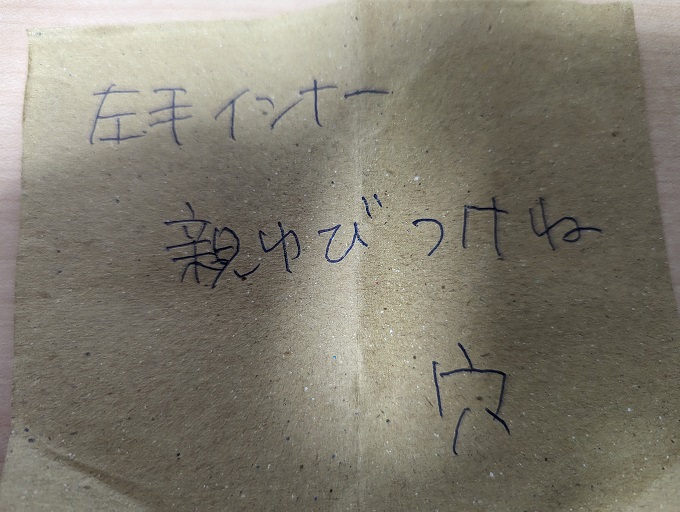 左手インナー
親ゆびつけね
穴